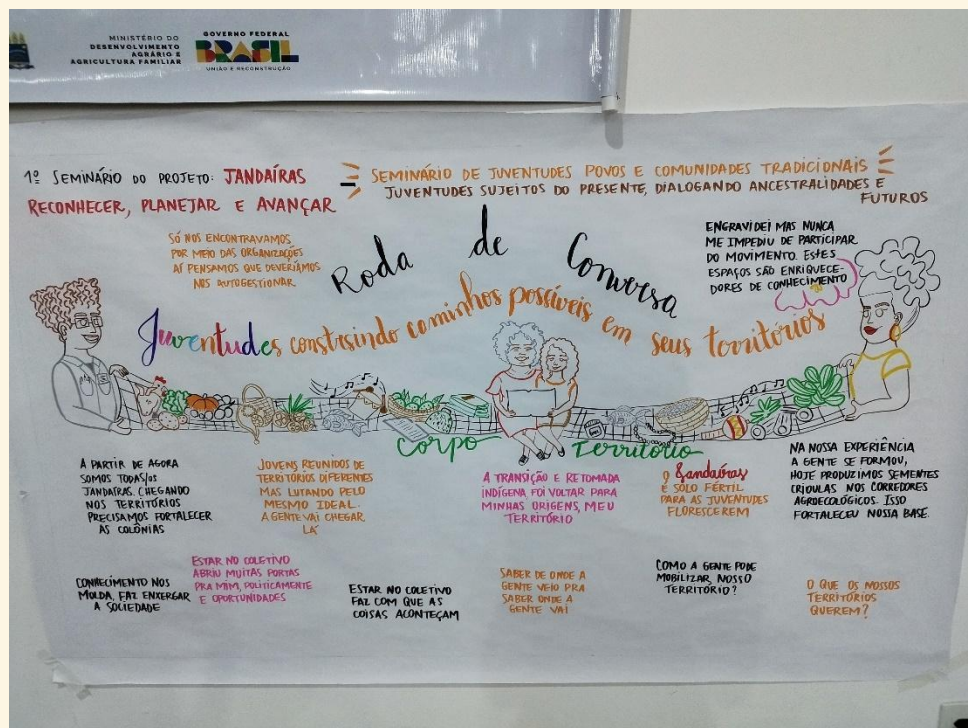 MINISTÉRIO DO
DESENVOLVIMENTO
AGRÁRIO E
AGRICULTURA FAMILIAR
GOVERNO FEDERAL
BRASIL
UNIÃO E RECONSTRUÇÃO
1º SEMINÁRIO DO PROJETO: JANDAÍRAS
RECONHECER, PLANEJAR E AVANÇAR
SEMINÁRIO DE JUVENTUDES POVOS E COMUNIDADES TRADICIONAIS
JUVENTUDES SUJEITOS DO PRESENTE, DIALOGANDO ANCESTRALIDADES E
FUTUROS
SÓ NOS ENCONTRAVAMOS
POR MEIO DAS ORGANIZAÇÕES
AÍ PENSAMOS QUE DEVERÍAMOS
NOS AUTOGESTIONAR
Roda de Conversa
ENGRAVIDEI MAS NUNCA
ME IMPEDIU DE PARTICIPAR
DO MOVIMENTO. ESTES
ESPAÇOS SÃO ENRIQUECE-
DORES DE CONHECIMENTO
Juventudes constrsindo caminhos possíveis em seus territórios
Corpo Território
A PARTIR DE AGORA
SOMOS TODAS/OS
JANDAÍRAS. CHEGANDO
NOS TERRITÓRIOS
PRECISAMOS FORTALECER
AS COLÔNIAS
JOVENS REUNIDOS DE
TERRITÓRIOS DIFERENTES
MAS LUTANDO PELO
MESMO IDEAL.
A GENTE VAI CHEGAR
LÁ
A TRANSIÇÃO E RETOMADA
INDÍGENA FOI VOLTAR PARA
MINHAS ORIGENS, MEU
TERRITÓRIO
O Jandaíras
É SOLO FÉRTIL
PARA AS JUVENTUDES
FLORESCEREM
NA NOSSA EXPERIÊNCIA
A GENTE SE FORMOU,
HOJE PRODUZIMOS SEMENTES
CRIOULAS NOS CORREDORES
AGROECOLÓGICOS. ISSO
FORTALECEU NOSSA BASE.
CONHECIMENTO NOS
MOLDA, FAZ ENXERGAR
A SOCIEDADE
ESTAR NO COLETIVO
ABRIU MUITAS PORTAS
PRA MIM, POLITICAMENTE
E OPORTUNIDADES
ESTAR NO COLETIVO
FAZ COM QUE AS
COISAS ACONTEÇAM
SABER DE ONDE A
GENTE VEIO PRA
SABER ONDE A
GENTE VAI
COMO A GENTE PODE
MOBILIZAR, NOSSO
TERRITÓRIO?
O QUE OS NOSSOS
TERRITÓRIOS
QUEREM?